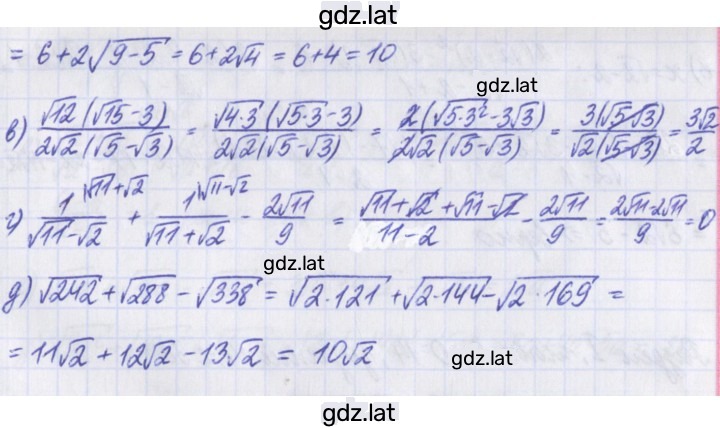 gdz.lat
= 6+2√(9-5) = 6+2√4 = 6+4 = 10
gdz.lat
в) √12(√15-3)/2√2(√5-√3) = √4·3(√5·3-3)/2√2(√5-√3) = 2(√5·3²-3√3)/2√2(√5-√3) = 3(√5-√3)/√2(√5-√3) = 3√2/2
г) 1\√11+√2/√11-√2 + 1\√11-√2/√11+√2 - 2√11/9 = √11+√2+√11-√2/11-2 - 2√11/9 = 2√11-2√11/9 = 0
gdz.lat
д) √242+√288-√338 = √2·121+√2·144-√2·169 =
= 11√2+12√2-13√2 = 10√2
gdz.lat
gdz.lat